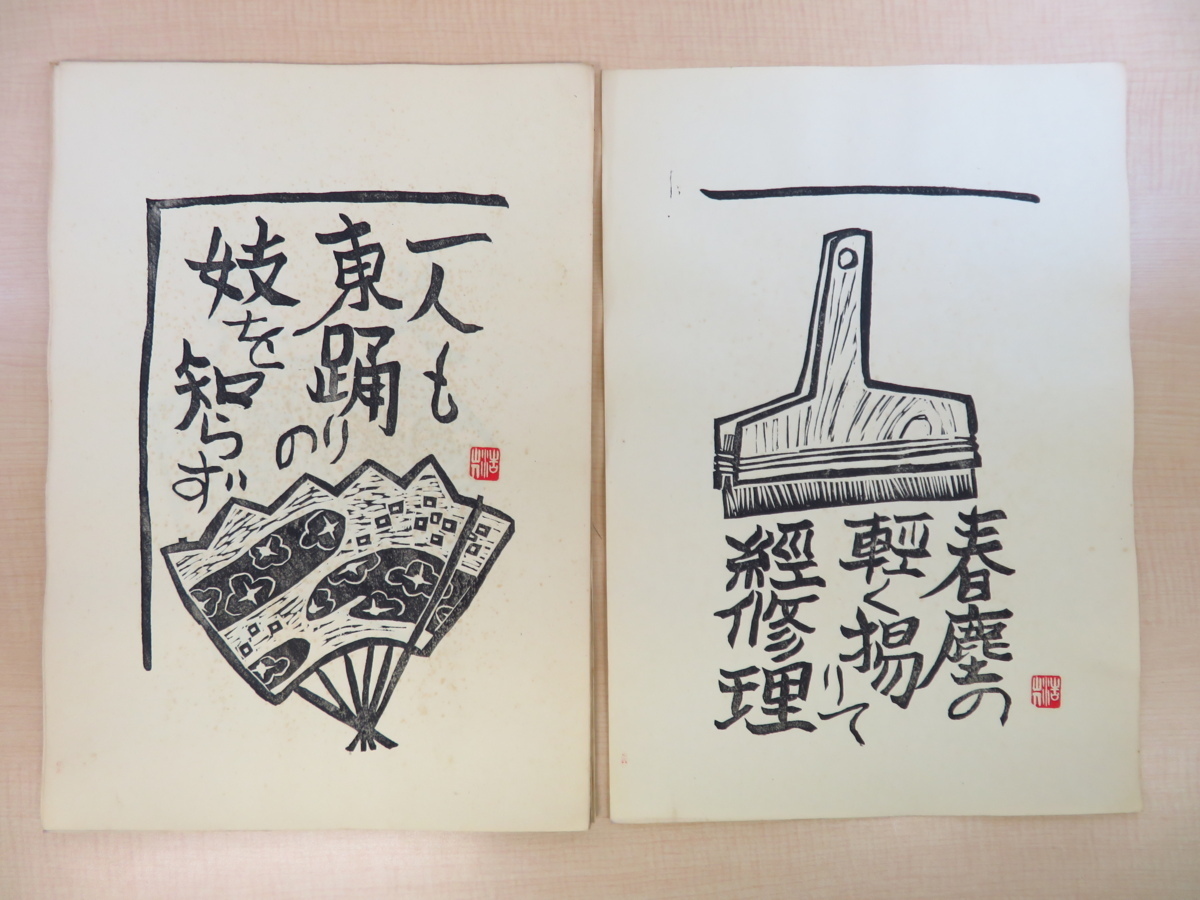 一人も
東踊りの
妓を
知らず
春塵の
軽く揚りて
經修理